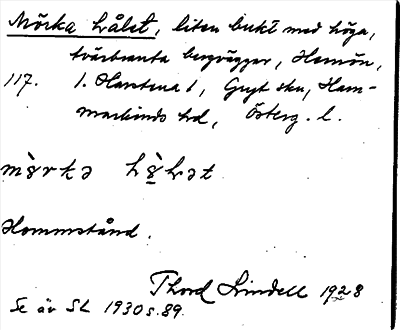 Mörka hålet, liten bukt med höga,
tvärbranta bergväggar, Hemön,
117. 1. Hartena 1, Gryt skn, Ham-
markinds hd, Österg. l.
Hemmstånd.
Thord Lindell 1928
Se äv SL 1930 s. 89.